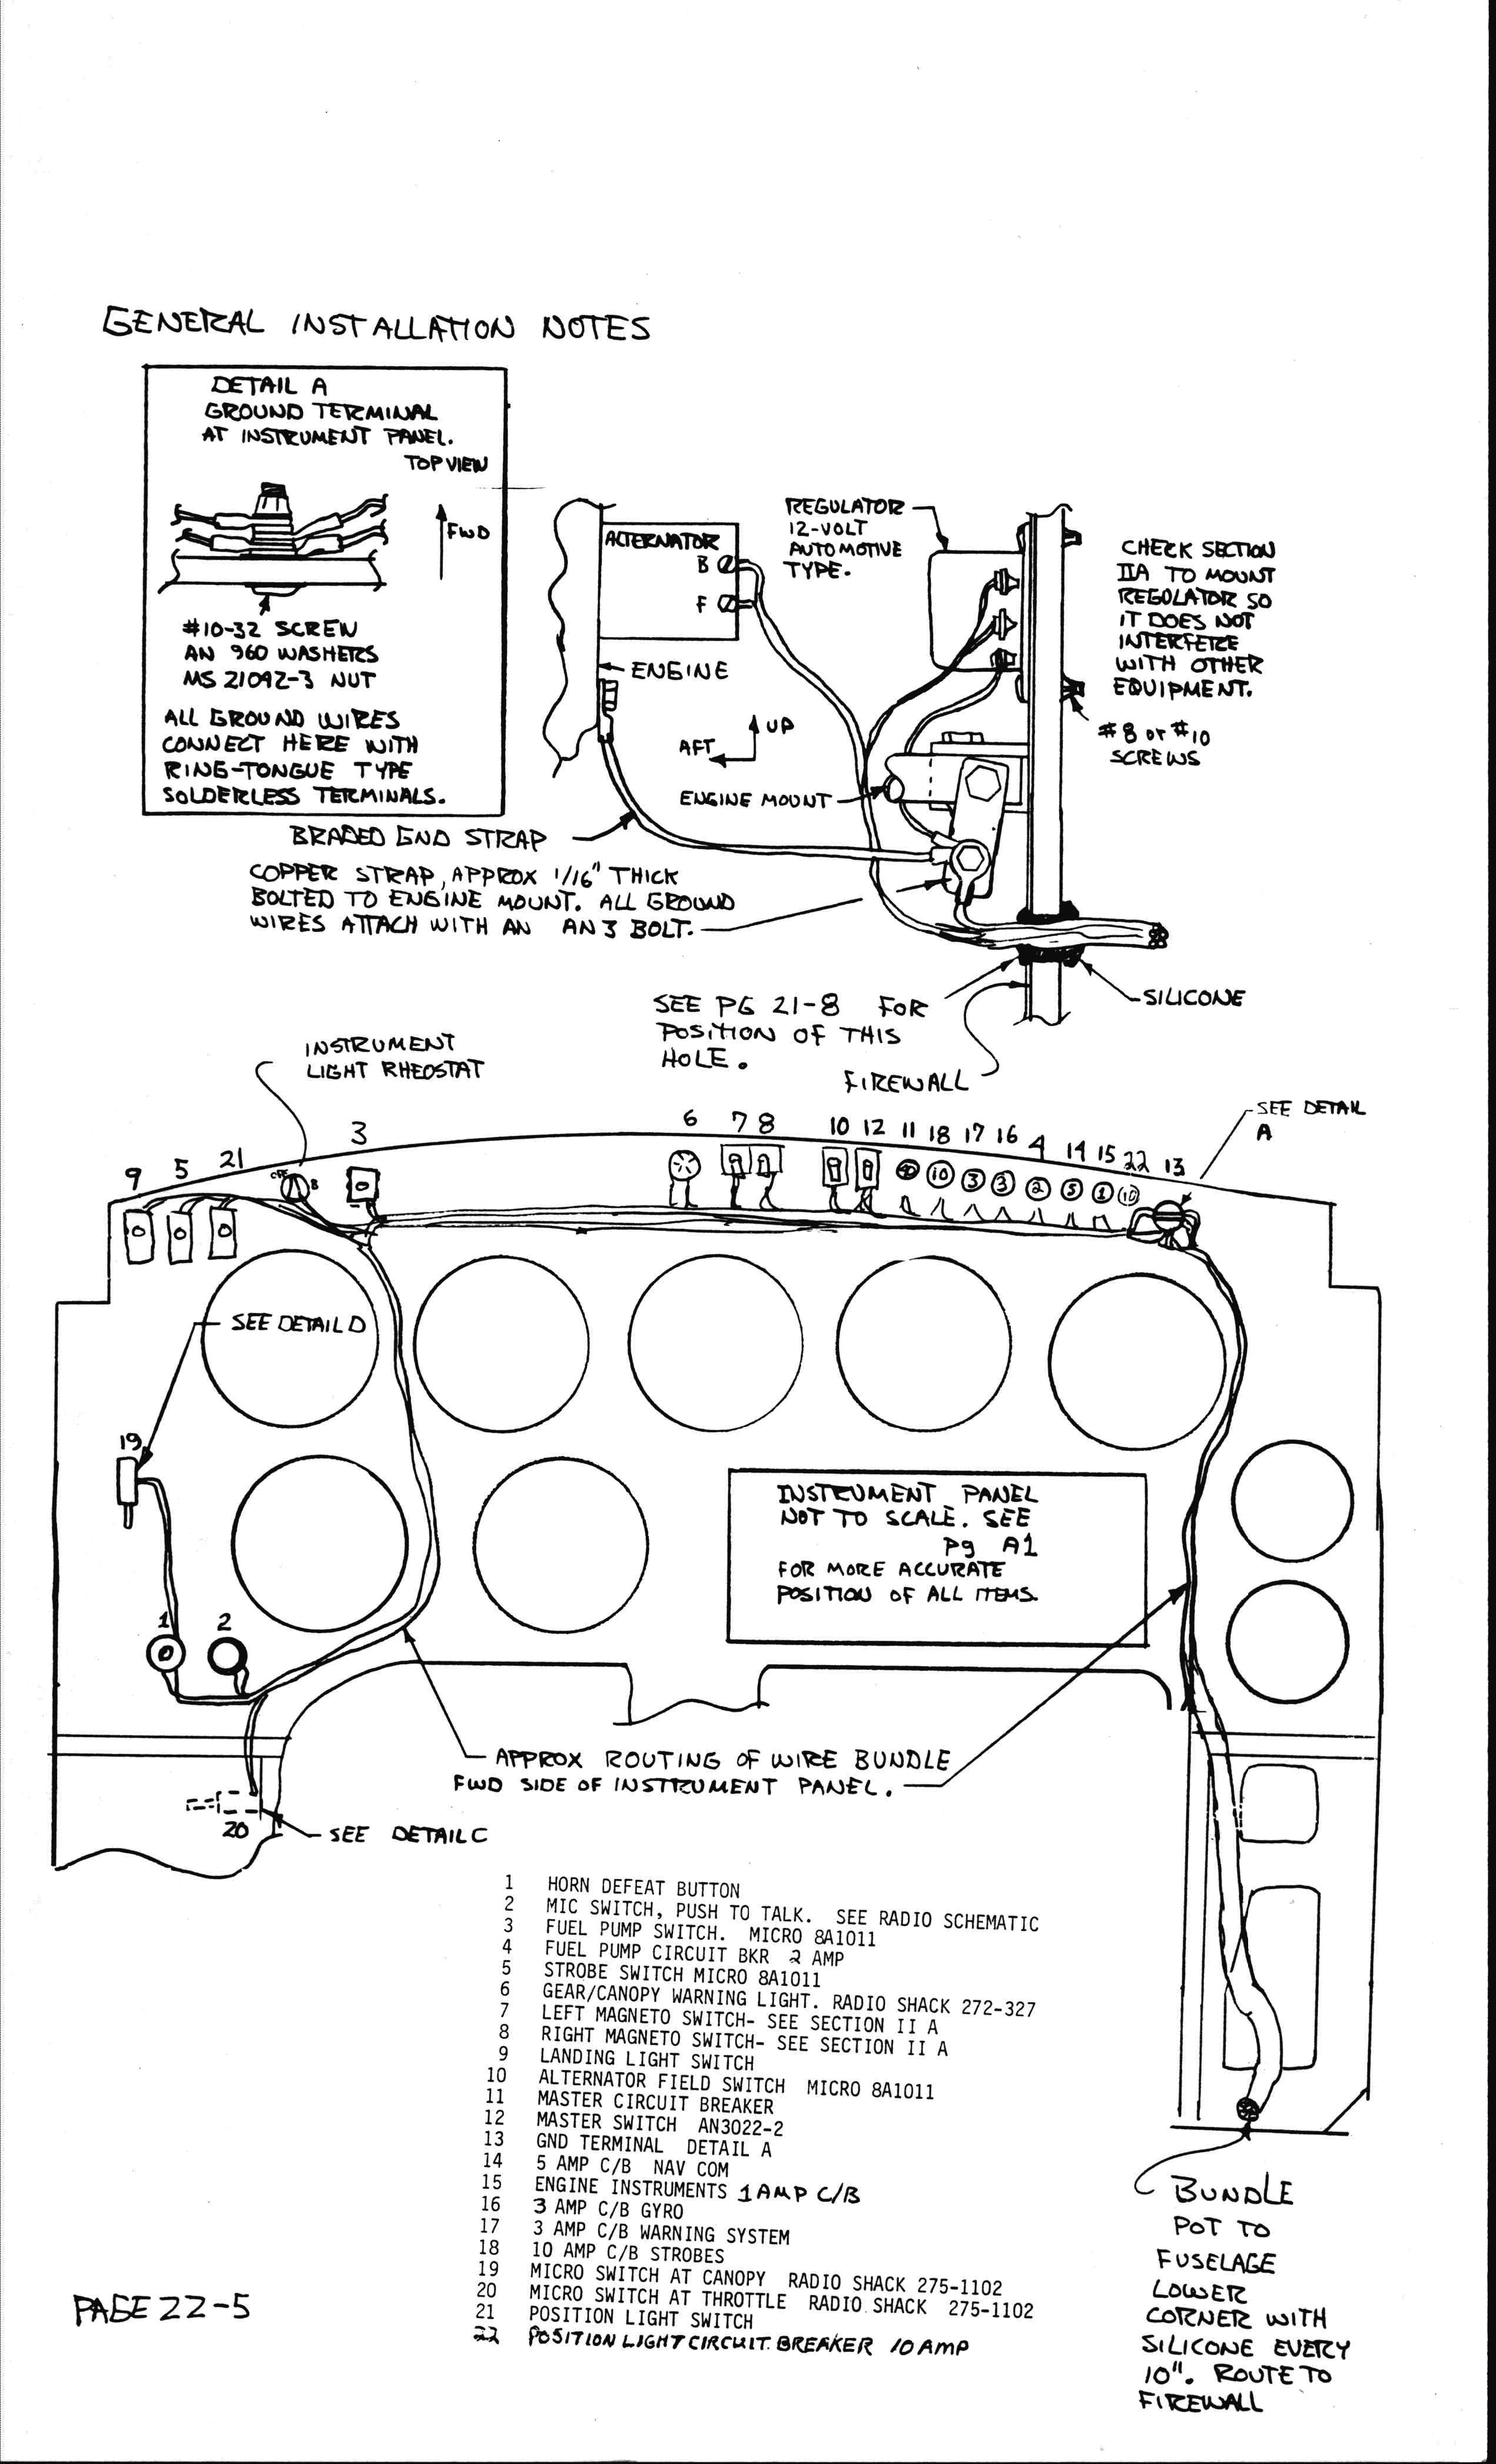 GENERAL INSTALLATION NOTES
DETAIL A
GROUND TERMINAL
AT INSTRUMENT PANEL.
TOP VIEW
FWD
#10-32 SCREW
AN 960 WASHERS
MS 21042-3 NUT
ALL GROUND WIRES
CONNECT HERE WITH
RING-TONGUE TYPE
SOLDERLESS TERMINALS.
ALTERNATOR
B
F
ENGINE
REGULATOR
12-VOLT
AUTOMOTIVE
TYPE.
CHECK SECTION
IIA TO MOUNT
REGULATOR SO
IT DOES NOT
INTERFERE
WITH OTHER
EQUIPMENT.
#8 or #10
SCREWS
UP
AFT
ENGINE MOUNT
BRADED GND STRAP
COPPER STRAP, APPROX 1/16" THICK
BOLTED TO ENGINE MOUNT. ALL GROUND
WIRES ATTACH WITH AN AN3 BOLT.
SEE PG 21-8 FOR
POSITION OF THIS
HOLE.
SILICONE
FIREWALL
INSTRUMENT
LIGHT RHEOSTAT
SEE DETAIL
A
9 5 21 3 6 7 8 10 12 11 18 17 16 4 14 15 22 13
OFF B
10 3 3 2 5 1 10
SEE DETAIL D
19
INSTRUMENT PANEL
NOT TO SCALE. SEE
Pg A1
FOR MORE ACCURATE
POSITION OF ALL ITEMS.
1 2
APPROX ROUTING OF WIRE BUNDLE
FWD SIDE OF INSTRUMENT PANEL.
20
SEE DETAIL C
1 HORN DEFEAT BUTTON
2 MIC SWITCH, PUSH TO TALK. SEE RADIO SCHEMATIC
3 FUEL PUMP SWITCH. MICRO 8A1011
4 FUEL PUMP CIRCUIT BKR 2 AMP
5 STROBE SWITCH MICRO 8A1011
6 GEAR/CANOPY WARNING LIGHT. RADIO SHACK 272-327
7 LEFT MAGNETO SWITCH- SEE SECTION II A
8 RIGHT MAGNETO SWITCH- SEE SECTION II A
9 LANDING LIGHT SWITCH
10 ALTERNATOR FIELD SWITCH MICRO 8A1011
11 MASTER CIRCUIT BREAKER
12 MASTER SWITCH AN3022-2
13 GND TERMINAL DETAIL A
14 5 AMP C/B NAV COM
15 ENGINE INSTRUMENTS 1 AMP C/B
16 3 AMP C/B GYRO
17 3 AMP C/B WARNING SYSTEM
18 10 AMP C/B STROBES
19 MICRO SWITCH AT CANOPY RADIO SHACK 275-1102
20 MICRO SWITCH AT THROTTLE RADIO SHACK 275-1102
21 POSITION LIGHT SWITCH
22 POSITION LIGHT CIRCUIT BREAKER 10 AMP
BUNDLE
POT TO
FUSELAGE
LOWER
CORNER WITH
SILICONE EVERY
10". ROUTE TO
FIREWALL
PAGE 22-5